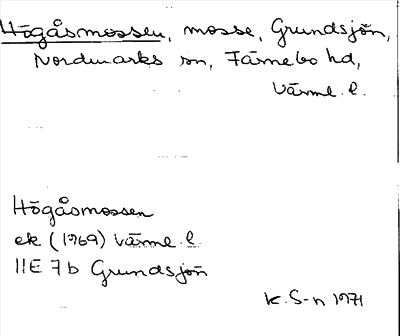 Högåsmossen, mosse, Grundsjön,
Nordmarks sn, Färnebo hd,
Värml. l.
Högåsmossen
ek (1969) Värml. l.
11E 7b Grundsjön
K. S-n 1971